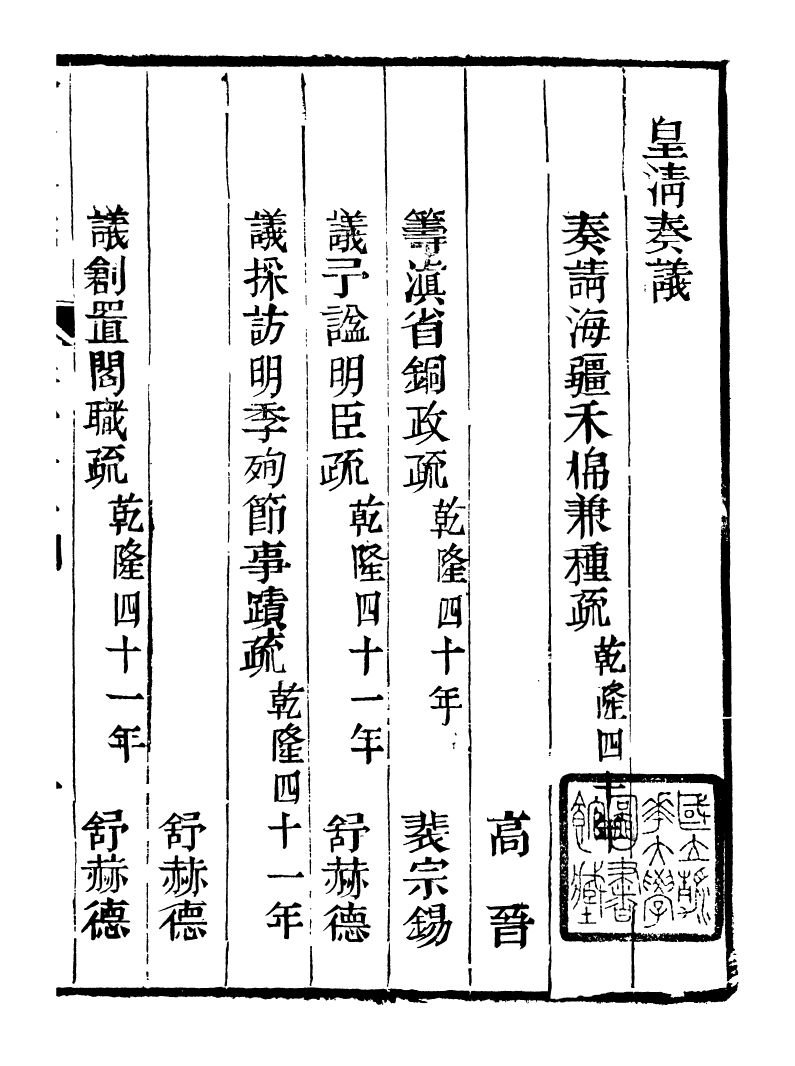 皇清奏議
奏請海疆禾棉兼種疏乾隆四十年
高晉
籌滇省銅政疏乾隆四十年
裴宗錫
議予諡明臣疏乾隆四十一年
舒赫德
議採訪明季殉節事蹟疏乾隆四十一年
舒赫德
議創置閣職疏乾隆四十一年
舒赫德
國立清華大學圖書館藏